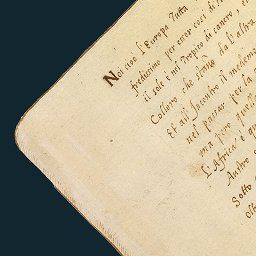 Noi cioè l'Europa Tutta
freddissimo per esser cosi di
il sole è nel Tropico di cancro, e
Coloro che stãno da l'altra
Et all' incontro il medemo
nel passar per la
ma però quella
L'Africa è q
Austro
Sotto